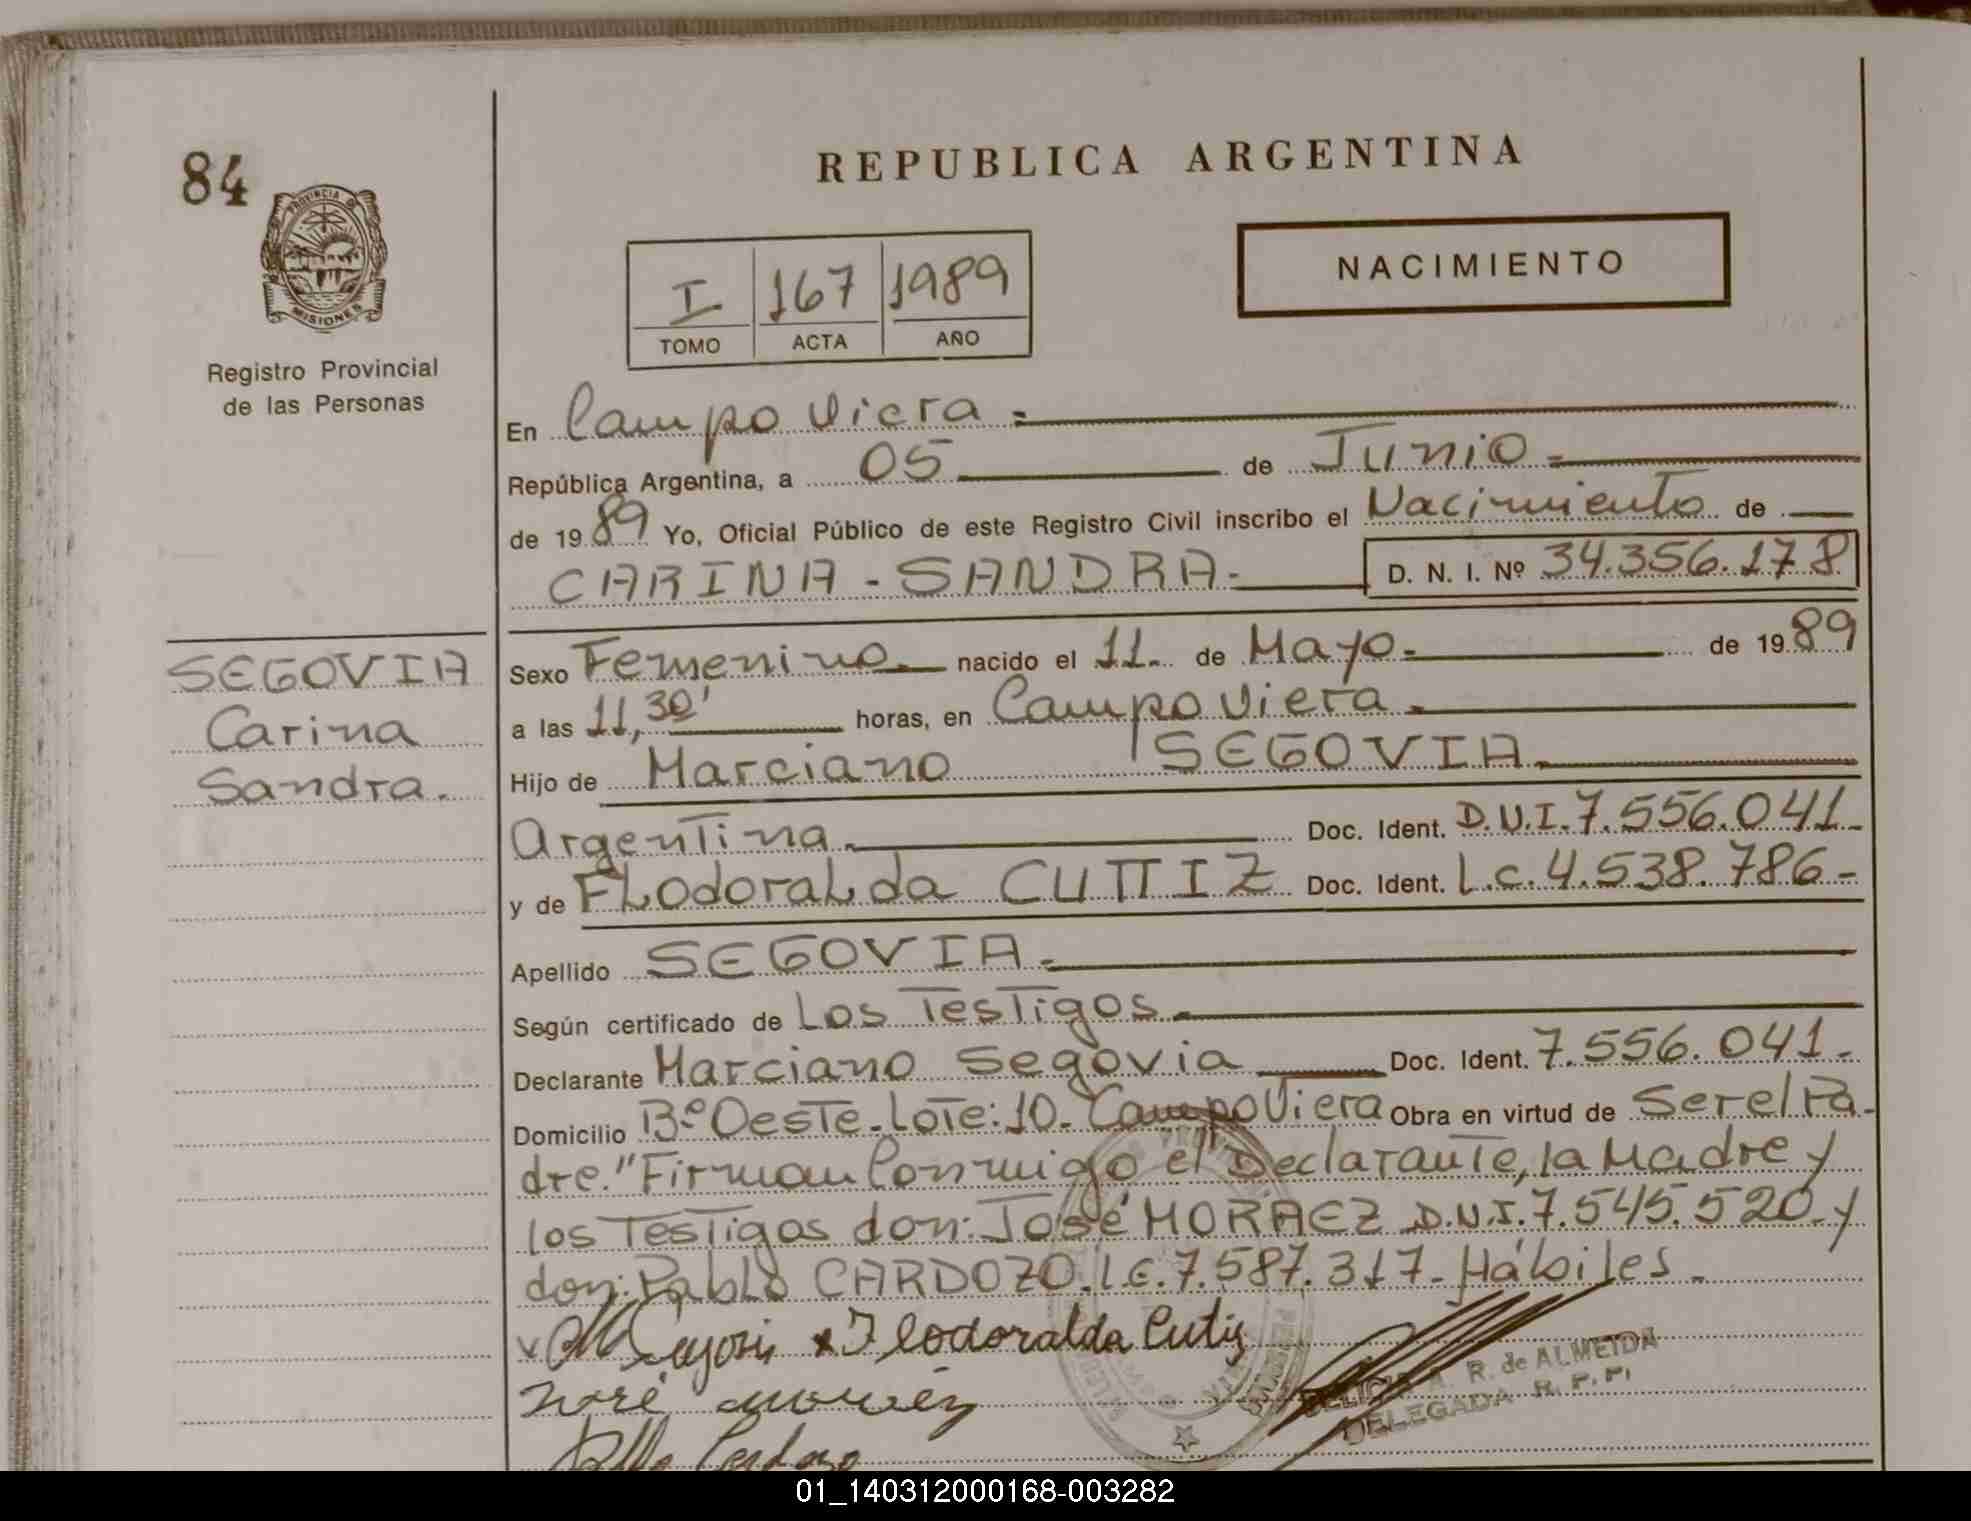 84
PROVINCIA DE
MISIONES
Registro Provincial
de las Personas
SEGOVIA
Carina
Sandra.
REPUBLICA ARGENTINA
NACIMIENTO
I 167 1989
TOMO ACTA AÑO
En Campo Viera.
República Argentina, a 05 de Junio.
de 1989 Yo, Oficial Público de este Registro Civil inscribo el Nacimiento de
CARINA - SANDRA. D. N. I. Nº 34.356.178
Sexo Femenino. nacido el 11. de Mayo. de 1989
a las 11,30' horas, en Campo Viera.
Hijo de Marciano SEGOVIA.
Argentina. Doc. Ident. D.N.I. 7.556.041-
y de FLodoraLda CUTTIZ Doc. Ident. L.C. 4.538.786-
Apellido SEGOVIA.
Según certificado de Los Testigos.
Declarante Marciano Segovia Doc. Ident. 7.556.041-
Domicilio Bº Oeste. Lote: 10. Campo Viera Obra en virtud de Ser el Pa-
dre." Firman Conmigo el Declarante, la Madre y
los Testigos don: José MORAEZ D.N.I. 7.545.520. y
don: Pablo CARDOZO. L.E. 7.587.317- Hábiles.
x Flodoralda Cutiz
José
Cardozo
A. R. de ALMEIDA
DELEGADA R. P. P.
01_140312000168-003282